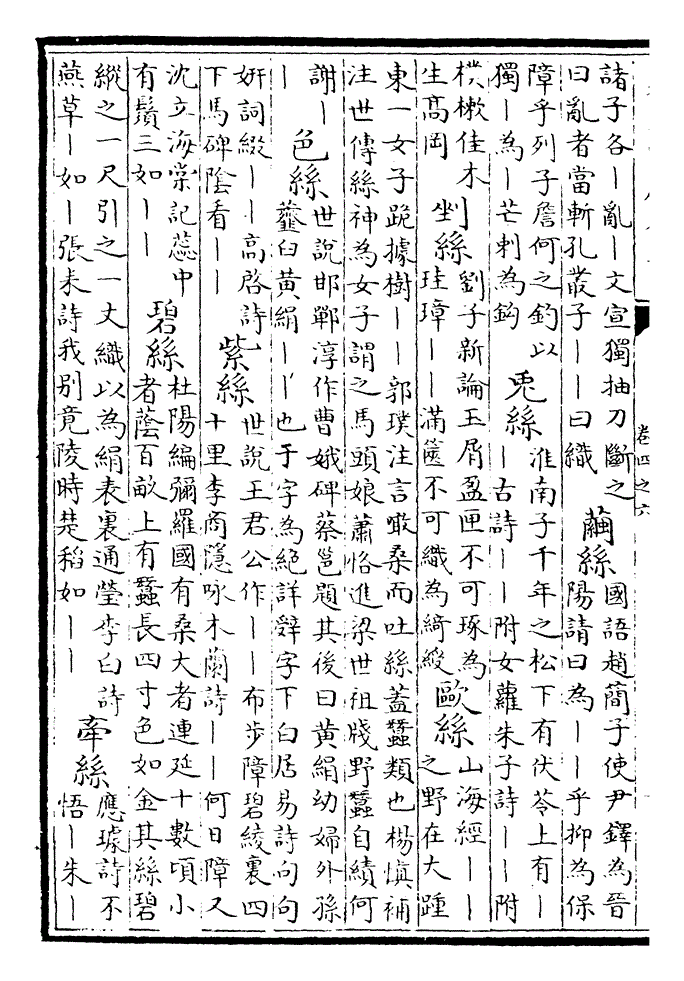 諸子各｜亂｜文宣獨抽刀斷之
曰亂者當斬孔叢子｜｜曰織
繭絲
國語趙簡子使尹鐸為晉
陽請曰為｜｜乎抑為保
障乎列子詹何之釣以
獨｜為｜芒刺為鈎
兎絲
淮南子千年之松下有伏苓上有｜
｜古詩｜｜附女蘿朱子詩｜｜附
樸樕佳木
生髙岡
剉絲
劉子新論玉屑盈匣不可琢為
珪璋｜｜滿篋不可織為綺綬
歐絲
山海經｜｜
之野在大踵
東一女子跪據樹｜｜郭璞注言噉桑而吐絲蓋蠶類也楊愼補
注世傳絲神為女子謂之馬頭娘蕭恪進梁世祖牋野蠶自績何
謝｜
｜
色絲
世說邯鄲淳作曹娥碑蔡邕題其後曰黄絹幼婦外孫
虀臼黄絹｜｜也于字為絕詳辤字下白居易詩句句
妍詞綴｜｜高啓詩
下馬碑陰看｜｜
紫絲
世說王君公作｜｜布步障碧綾裏四
十里李商隱咏木蘭詩｜｜何日障又
沈立海棠記蕊中
有鬚三如｜｜
碧絲
杜陽編彌羅國有桑大者連延十數頃小
者蔭百畝上有蠶長四寸色如金其絲碧
縱之一尺引之一丈織以為絹表裏通瑩李白詩
燕草｜如｜張耒詩我别竟陵時楚稻如｜｜
牽絲
應璩詩不
悟｜朱｜
卷四之六